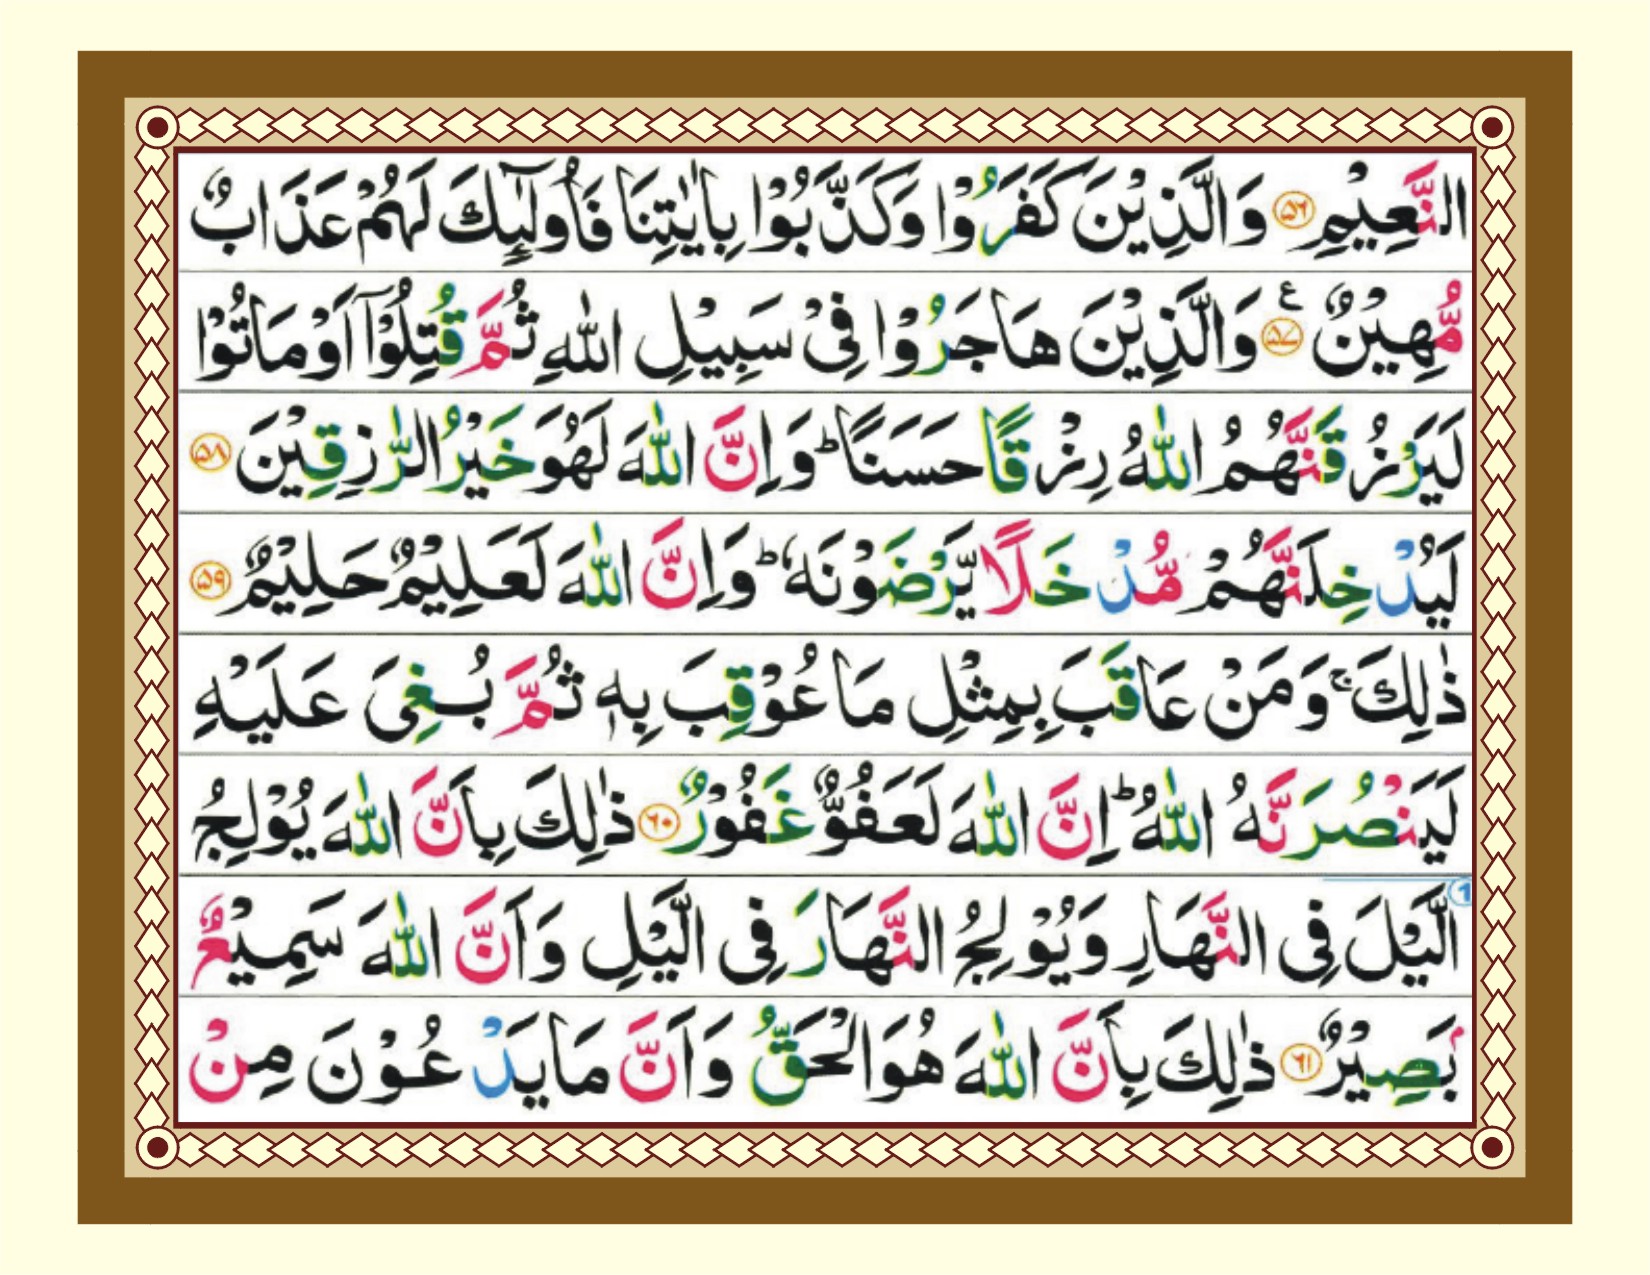 النَّعِيْمِ ۝۵۶ وَالَّذِيْنَ كَفَرُوْا وَكَذَّبُوْا بِاٰيٰتِنَا فَاُولٰٓئِكَ لَهُمْ عَذَابٌ
مُّهِيْنٌ ۝۵۷ ع وَالَّذِيْنَ هَاجَرُوْا فِىْ سَبِيْلِ اللّٰهِ ثُمَّ قُتِلُوْۤا اَوْ مَاتُوْا
لَيَرْزُقَنَّهُمُ اللّٰهُ رِزْقًا حَسَنًا ؕ وَاِنَّ اللّٰهَ لَهُوَ خَيْرُ الرّٰزِقِيْنَ ۝۵۸
لَيُدْخِلَنَّهُمْ مُّدْخَلًا يَّرْضَوْنَهٗ ؕ وَاِنَّ اللّٰهَ لَعَلِيْمٌ حَلِيْمٌ ۝۵۹
ذٰلِكَ ۚ وَمَنْ عَاقَبَ بِمِثْلِ مَا عُوْقِبَ بِهٖ ثُمَّ بُغِىَ عَلَيْهِ
لَيَنْصُرَنَّهُ اللّٰهُ ؕ اِنَّ اللّٰهَ لَعَفُوٌّ غَفُوْرٌ ۝۶۰ ذٰلِكَ بِاَنَّ اللّٰهَ يُوْلِجُ
الَّيْلَ فِى النَّهَارِ وَيُوْلِجُ النَّهَارَ فِى الَّيْلِ وَاَنَّ اللّٰهَ سَمِيْعٌۢ
بَصِيْرٌ ۝۶۱ ذٰلِكَ بِاَنَّ اللّٰهَ هُوَ الْحَقُّ وَاَنَّ مَا يَدْعُوْنَ مِنْ